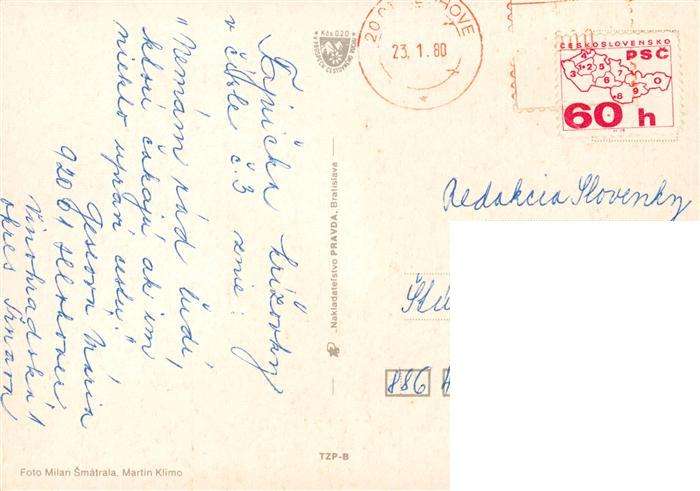 Tajnička krížovky
v čísle č. 3 znie:
"Nemám rád ľudí,
ktorí čakajú ak im
niekto upraví cestu."
Mária
920 01 Hlohovec
Vinohradská 1
okres Trnava
Kčs 0,20
23.1.80
ČESKOSLOVENSKO
PSČ
60 h
Redakcia Slovenky
886
Nakladateľstvo PRAVDA, Bratislava
TZP-B
Foto Milan Šmátrala, Martin Klimo